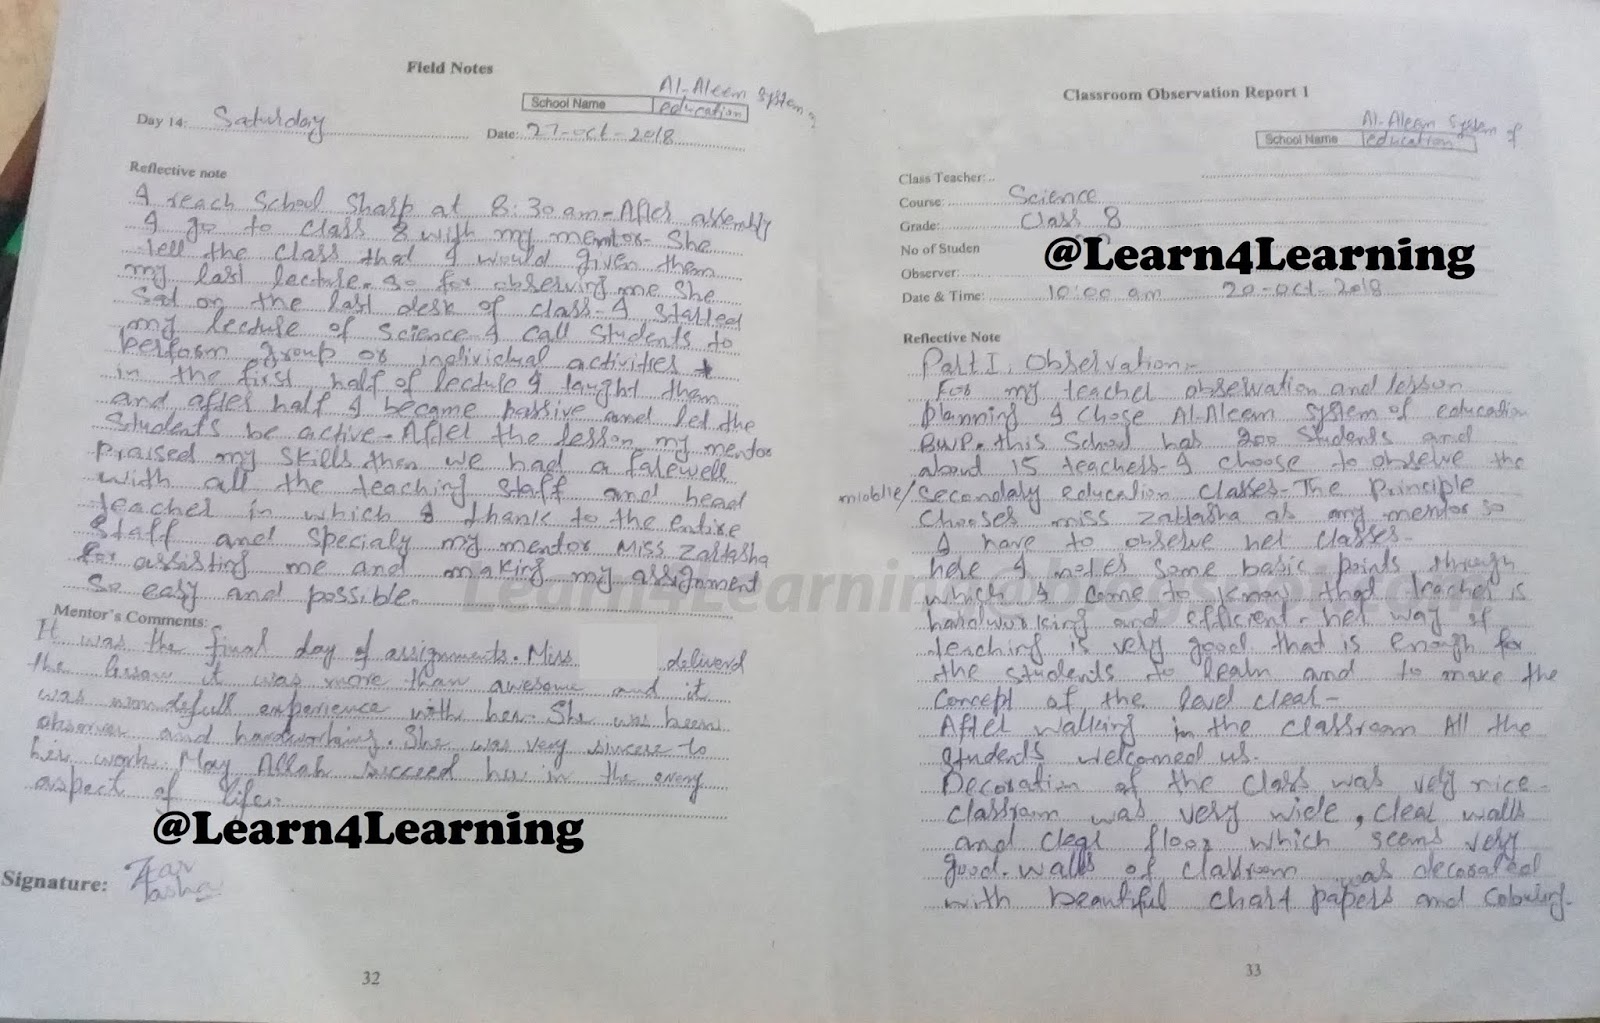 Field Notes
Al-Aleem System of
School Name education
Day 14: Saturday Date: 27-oct-2018
Reflective note
I reach School sharp at 8:30 am-After assembly
I go to class 8 with my mentor- She
tell the class that I would given them
my last lecture. so for observing me she
Sat on the last desk of class-I started
my lecture of science I call students to
perform group or individual activities
in the first half of lecture I taught them
and after half I became passive and let the
Students be active-After the lesson my mentor
praised my skills then we had a farewell
with all the teaching staff and head
teacher in which I thank to the entire
Staff and specialy my mentor Miss Zartasha
for assisting me and making my assignment
so easy and possible.
Mentor's Comments:
It was the final day of assignments. Miss deliverd
the lesson it was more than awesome and it
was wondefull experience with her. She was keen
observer and hardworking. She was very sincere to
her work May Allah succeed her in the every
aspect of life.
@Learn4Learning
Signature: Zar
tasha
32
Classroom Observation Report 1
Al-Aleem System of
School Name education
Class Teacher:
Course: Science
Grade: Class 8
No of Studen
@Learn4Learning
Observer:
Date & Time: 10:00 am 20-oct-2018
Reflective Note
Part I, Observation:-
For my teacher observation and lesson
planning I chose Al-Aleem System of education
BWP. this School has 200 students and
about 15 teachers-I choose to observe the
middle/Secondary education classes-The principle
Chooses miss zartasha as my mentor so
I have to observe her classes-
here I notes some basic points through
which I come to know that teacher is
hardworking and efficient. her way of
teaching is very good that is enough for
the students to learn and to make the
concept of the level clear-
After walking in the classroom All the
students welcomed us.
Decoration of the class was very nice-
classroom was very wide, clear walls
and clear floor which seems very
good. walls of classroom was decorated
with beautiful chart papers and colouring.
33